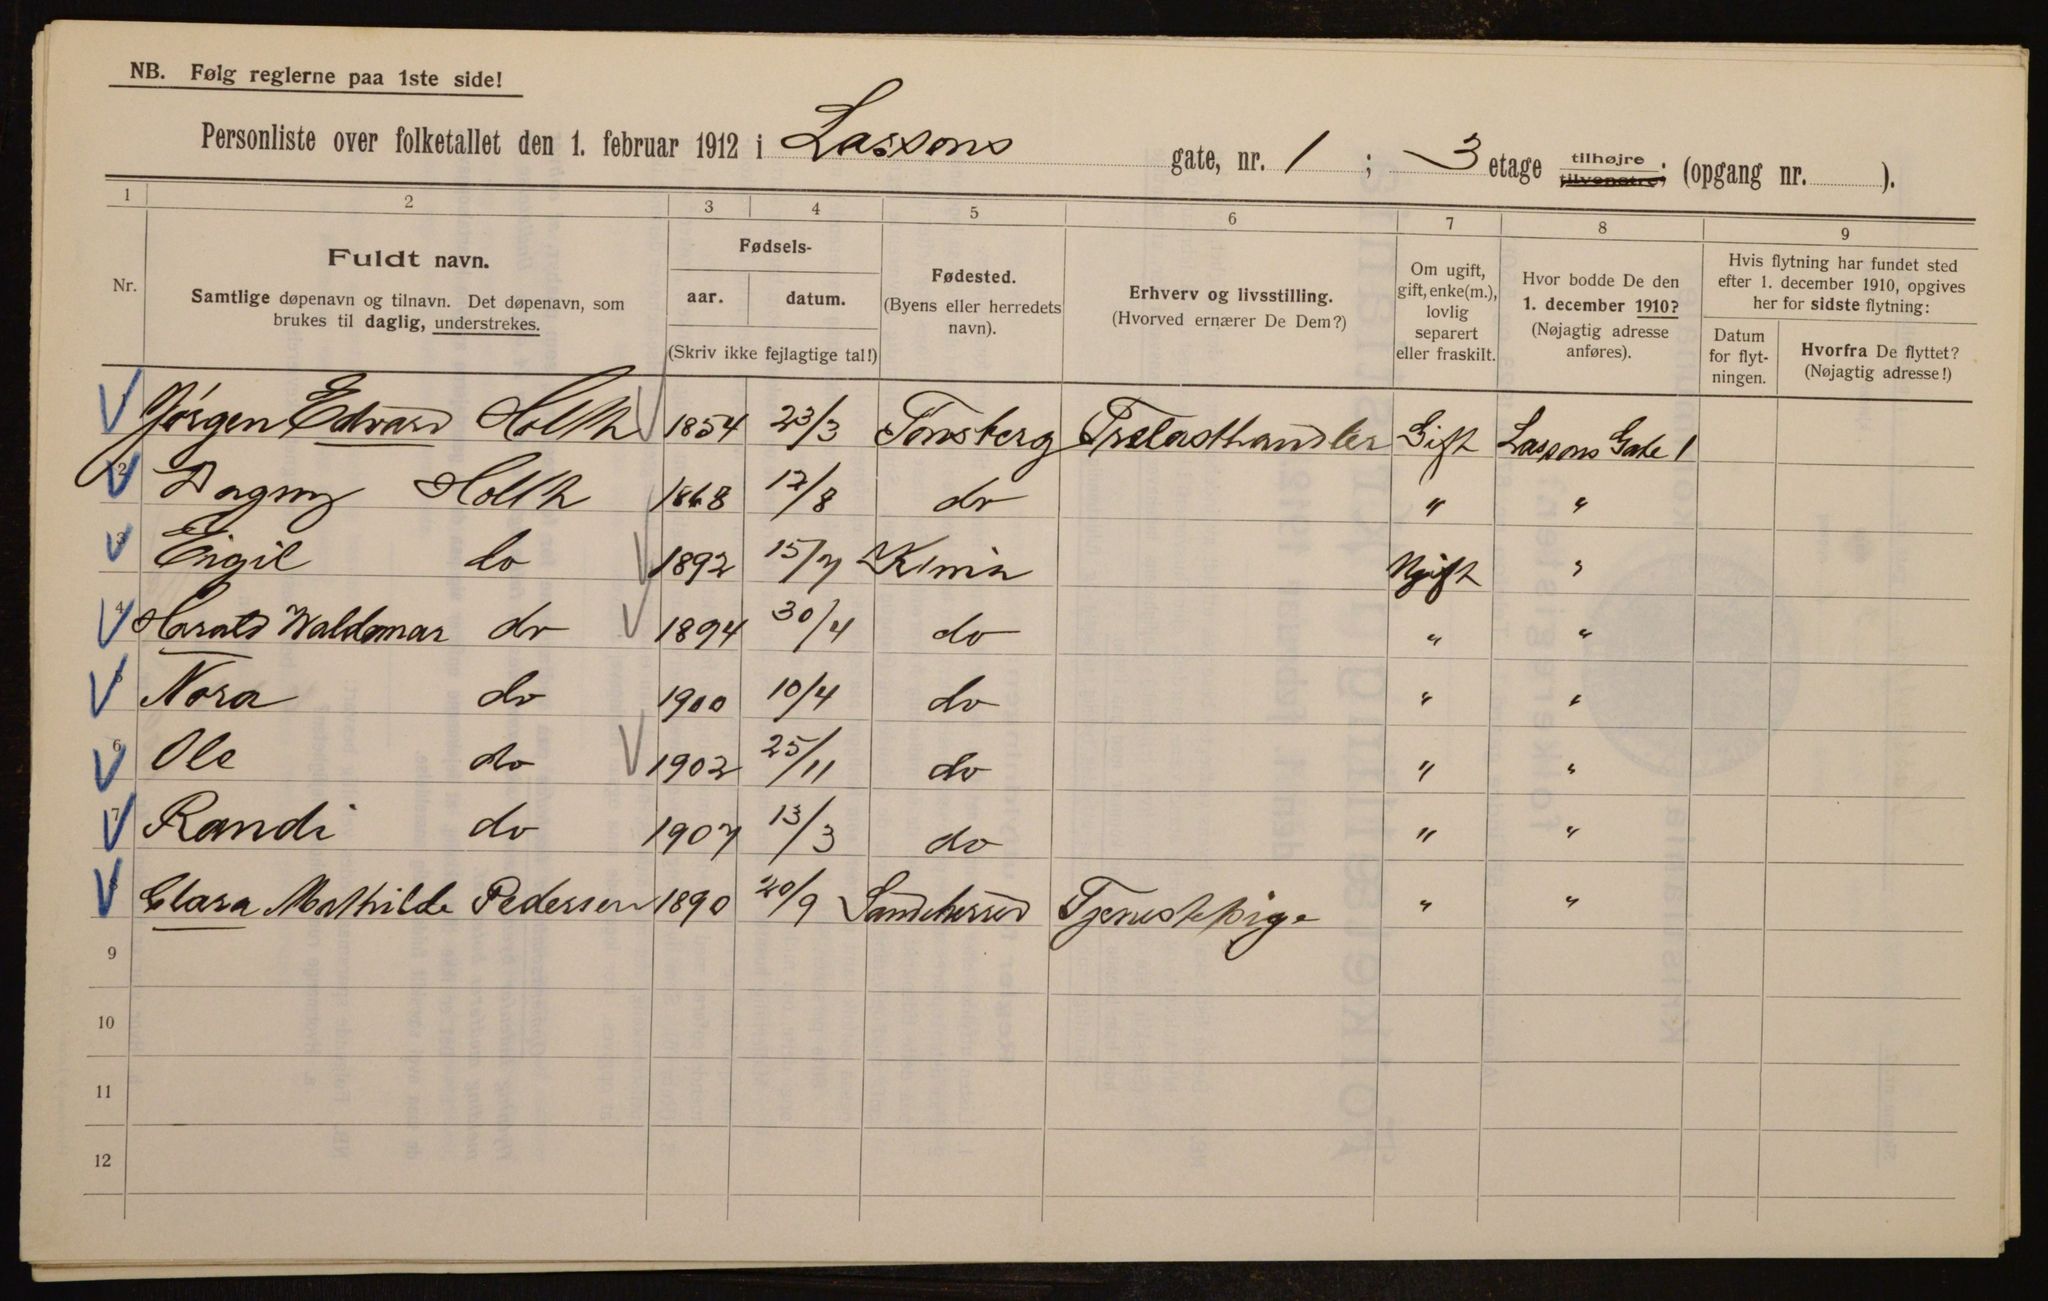 NB. Følg reglerne paa 1ste side!
Personliste over folketallet den 1. februar 1912 i Lassons gate, nr. 1 ; 3 etage tilhøjre tilvenstre; (opgang nr. ).
1 2 3 4 5 6 7 8 9
Nr.
Fuldt navn.
Samtlige døpenavn og tilnavn. Det døpenavn, som
brukes til daglig, understrekes.
Fødsels-
aar. datum.
(Skriv ikke fejlagtige tal!)
Fødested.
(Byens eller herredets
navn).
Erhverv og livsstilling.
(Hvorved ernærer De Dem?)
Om ugift,
gift, enke(m.),
lovlig
separert
eller fraskilt.
Hvor bodde De den
1. december 1910?
(Nøjagtig adresse
anføres).
Hvis flytning har fundet sted
efter 1. december 1910, opgives
her for sidste flytning:
Datum
for flyt-
ningen.
Hvorfra De flyttet?
(Nøjagtig adresse!)
1 Jørgen Edvard Holth 1854 23/3 Tønsberg Trælasthandler Gift Lassons Gate 1
2 Dagny Holth 1868 12/8 do " "
3 Eigil do 1892 15/7 Kr̄nia Ugift "
4 Harald Waldemar do 1894 30/4 do " "
5 Nora do 1900 10/4 do " "
6 Ole do 1902 25/11 do " "
7 Randi do 1907 13/3 do " "
8 Clara Mathilde Pedersen 1890 20/9 Sandeherred Tjenestepige " "
9
10
11
12